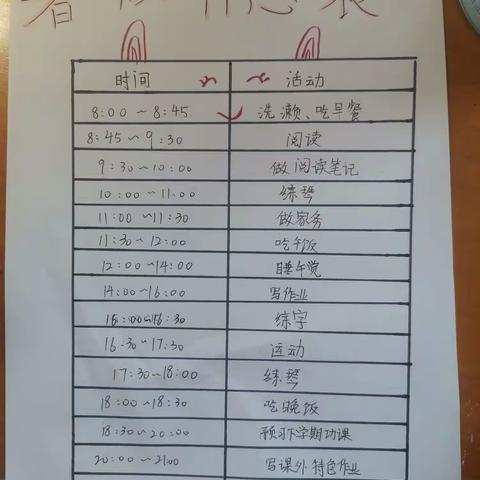 时间 活动
8:00~8:45 洗濑、吃早餐
8:45~9:30 阅读
9:30~10:00 做阅读笔记
10:00~11:00 练琴
11:00~11:30 做家务
11:30~12:00 吃午饭
12:00~14:00 睡午觉
14:00~16:00 写作业
15:00~16:30 练字
16:30~17:30 运动
17:30~18:00 练琴
18:00~18:30 吃晚饭
18:30~20:00 预习下学期功课
20:00~21:00 写课外特色作业